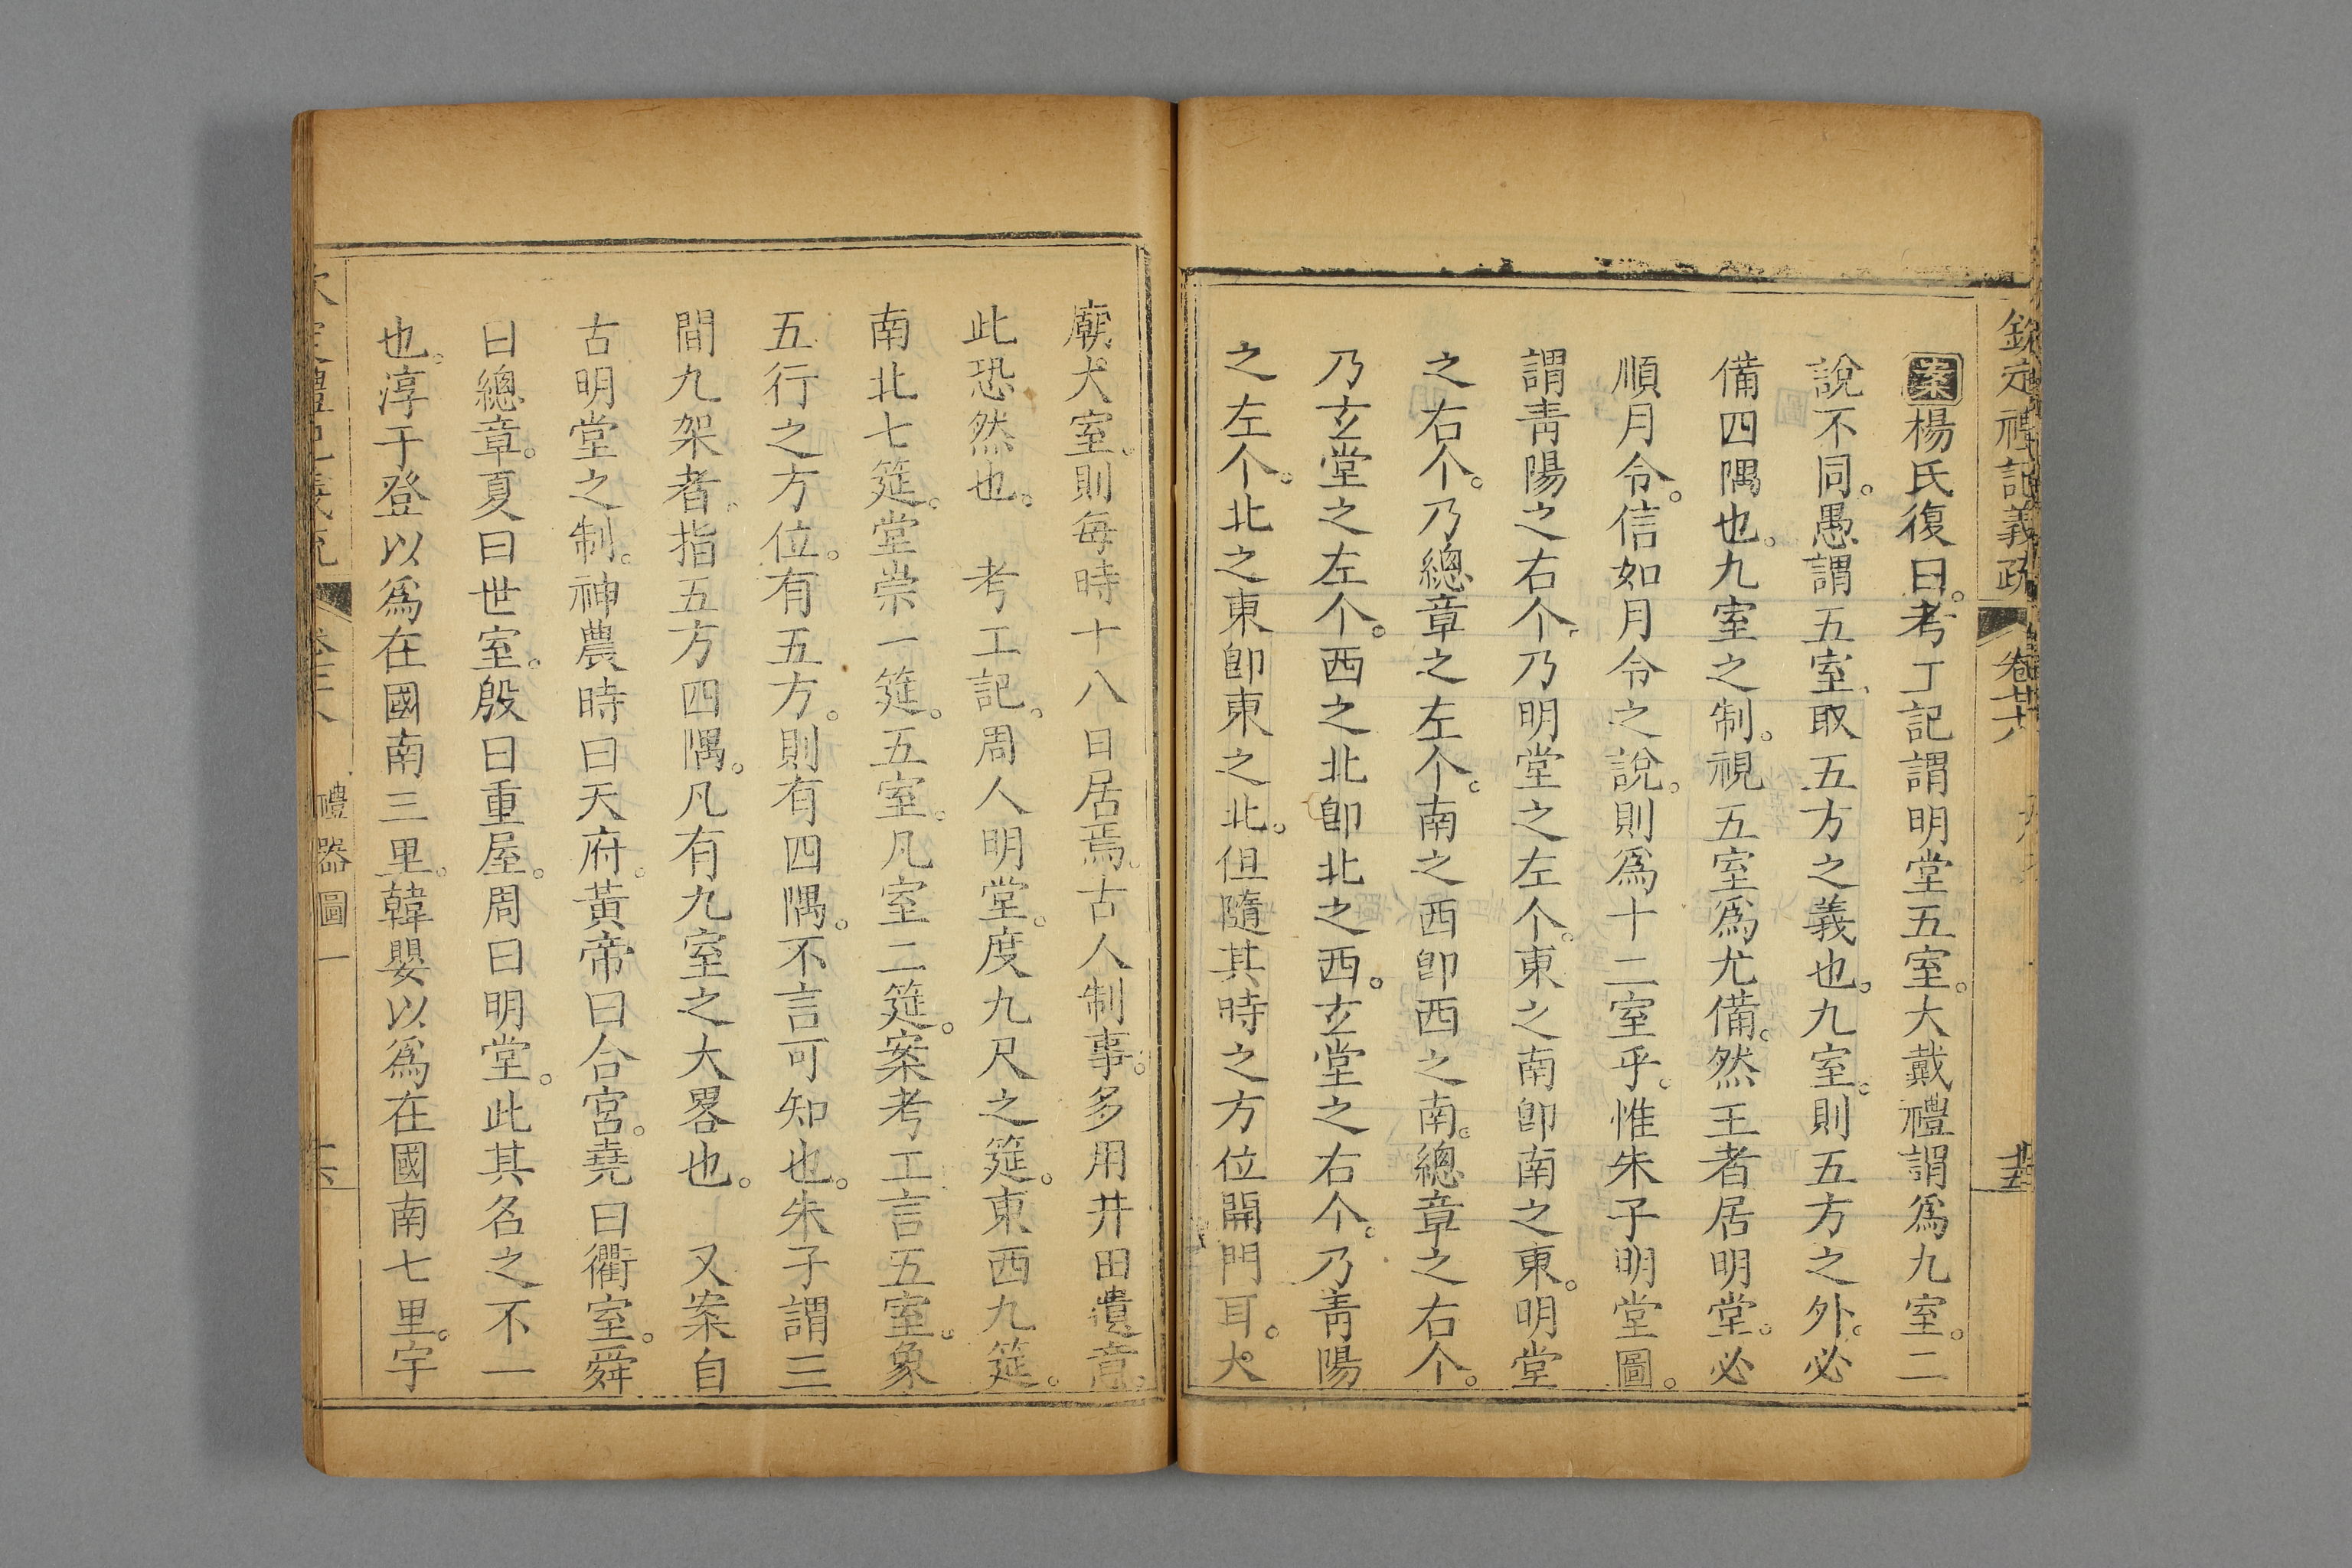 欽定禮記義疏 卷七十八
案楊氏復曰。考工記謂明堂五室。大戴禮謂爲九室。二
說不同。愚謂五室、取五方之義也。九室。則五方之外。必
備四隅也。九室之制。視五室爲尤備。然王者居明堂。必
順月令。信如月令之說。則爲十二室乎。惟朱子明堂圖。
謂靑陽之右个、乃明堂之左个。東之南卽南之東。明堂
之右个。乃總章之左个。南之西卽西之南。總章之右个。
乃玄堂之左个。西之北卽北之西。玄堂之右个。乃靑陽
之左个。北之東卽東之北。但隨其時之方位開門耳。太
廟太室。則每時十八日居焉。古人制事。多用井田遺意。
此恐然也。 考工記。周人明堂。度九尺之筵。東西九筵。
南北七筵。堂崇一筵。五室。凡室二筵。案考工言五室。象
五行之方位。有五方。則有四隅。不言可知也。朱子謂三
間九架者。指五方四隅。凡有九室之大畧也。 又案自
古明堂之制。神農時曰天府。黃帝曰合宮。堯曰衢室。舜
曰總章。夏曰世室。殷曰重屋。周曰明堂。此其名之不一
也。淳于登以爲在國南三里。韓嬰以爲在國南七里。宇
禮器圖一